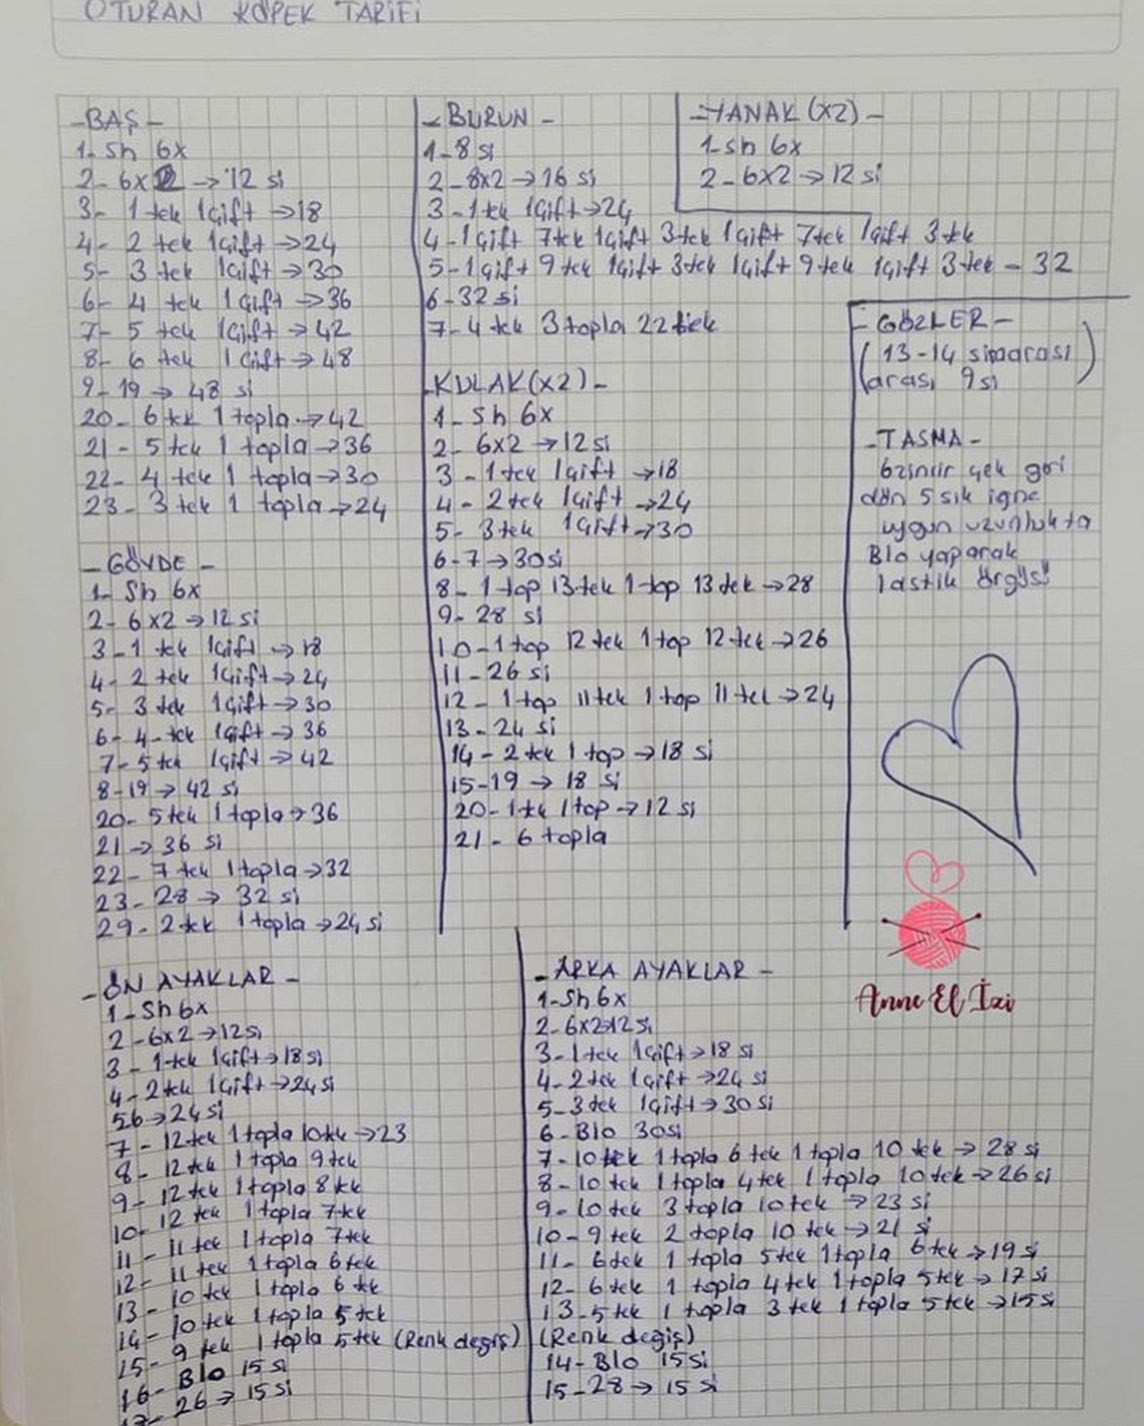 OTURAN KÖPEK TARİFİ
-BAŞ-
1- Sh 6x
2- 6x2 → 12 si
3- 1 tek 1çift → 18
4- 2 tek 1çift → 24
5- 3 tek 1çift → 30
6- 4 tek 1çift → 36
7- 5 tek 1çift → 42
8- 6 tek 1çift → 48
9-19 → 48 si
20- 6 tek 1 topla → 42
21- 5 tek 1 topla → 36
22- 4 tek 1 topla → 30
23- 3 tek 1 topla → 24
-GÖVDE-
1- Sh 6x
2- 6x2 → 12 si
3- 1 tek 1çift → 18
4- 2 tek 1çift → 24
5- 3 tek 1çift → 30
6- 4 tek 1çift → 36
7- 5 tek 1çift → 42
8-19 → 42 si
20- 5 tek 1 topla → 36
21 → 36 si
22- 7 tek 1 topla → 32
23-28 → 32 si
29- 2 tek 1 topla → 24 si
-BURUN-
1-8 si
2-8x2 → 16 si
3-1 tek 1çift → 24
4-1çift 7tek 1çift 3tek 1çift 7tek 1çift 3tek
5-1çift 9 tek 1çift 3tek 1çift 9 tek 1çift 3 tek - 32
6-32 si
7- 4 tek 3 topla 22 tek
-YANAK (x2)-
1-sh 6x
2-6x2 → 12 si
-KULAK (x2)-
1- Sh 6x
2- 6x2 → 12 si
3- 1 tek 1çift → 18
4- 2 tek 1çift → 24
5- 3 tek 1çift → 30
6-7 → 30 si
8- 1 top 13 tek 1 top 13 tek → 28
9- 28 si
10-1 top 12 tek 1 top 12 tek → 26
11-26 si
12- 1 top 11 tek 1 top 11 tek → 24
13-24 si
14-2 tek 1 top → 18 si
15-19 → 18 si
20-1 tek 1 top → 12 si
21- 6 topla
-GÖZLER-
(13-14 sırarası
arası 9 si)
-TASMA-
6 zincir çek geri
dön 5 sık iğne
uygun uzunlukta
Blo yaparak
lastik örgüsü
Anne El İzi
-ÖN AYAKLAR-
1- Sh 6x
2-6x2 → 12 si
3- 1 tek 1çift → 18 si
4- 2 tek 1çift → 24 si
56 → 24 si
7- 12 tek 1 topla 10 tek → 23
8- 12 tek 1 topla 9 tek
9- 12 tek 1 topla 8 tek
10- 12 tek 1 topla 7 tek
11- 11 tek 1 topla 7 tek
12- 11 tek 1 topla 6 tek
13- 10 tek 1 topla 6 tek
14- 10 tek 1 topla 5 tek
15- 9 tek 1 topla 5 tek (Renk değiş)
16- Blo 15 si
17- 26 → 15 si
-ARKA AYAKLAR-
1-Sh 6x
2-6x2 12 si
3-1 tek 1çift → 18 si
4-2 tek 1çift → 24 si
5-3 tek 1çift → 30 si
6-Blo 30si
7-10 tek 1 topla 6 tek 1 topla 10 tek → 28 si
8-10 tek 1 topla 4 tek 1 topla 10 tek → 26 si
9-10 tek 3 topla 10 tek → 23 si
10-9 tek 2 topla 10 tek → 21 si
11- 6 tek 1 topla 5 tek 1 topla 6 tek → 19 si
12- 6 tek 1 topla 4 tek 1 topla 5 tek → 17 si
13-5 tek 1 topla 3 tek 1 topla 5 tek → 15 si
(Renk değiş)
14-Blo 15 si
15-28 → 15 si